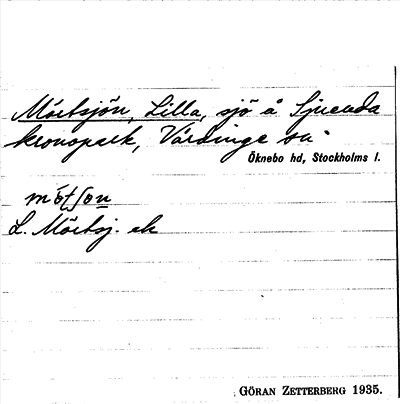 Mörtsjön, Lilla, sjö å Ljuenda
kronopark, Vårdinge sn
Öknebo hd, Stockholms l.
L. Mörtsj. ek
GÖRAN ZETTERBERG 1935.